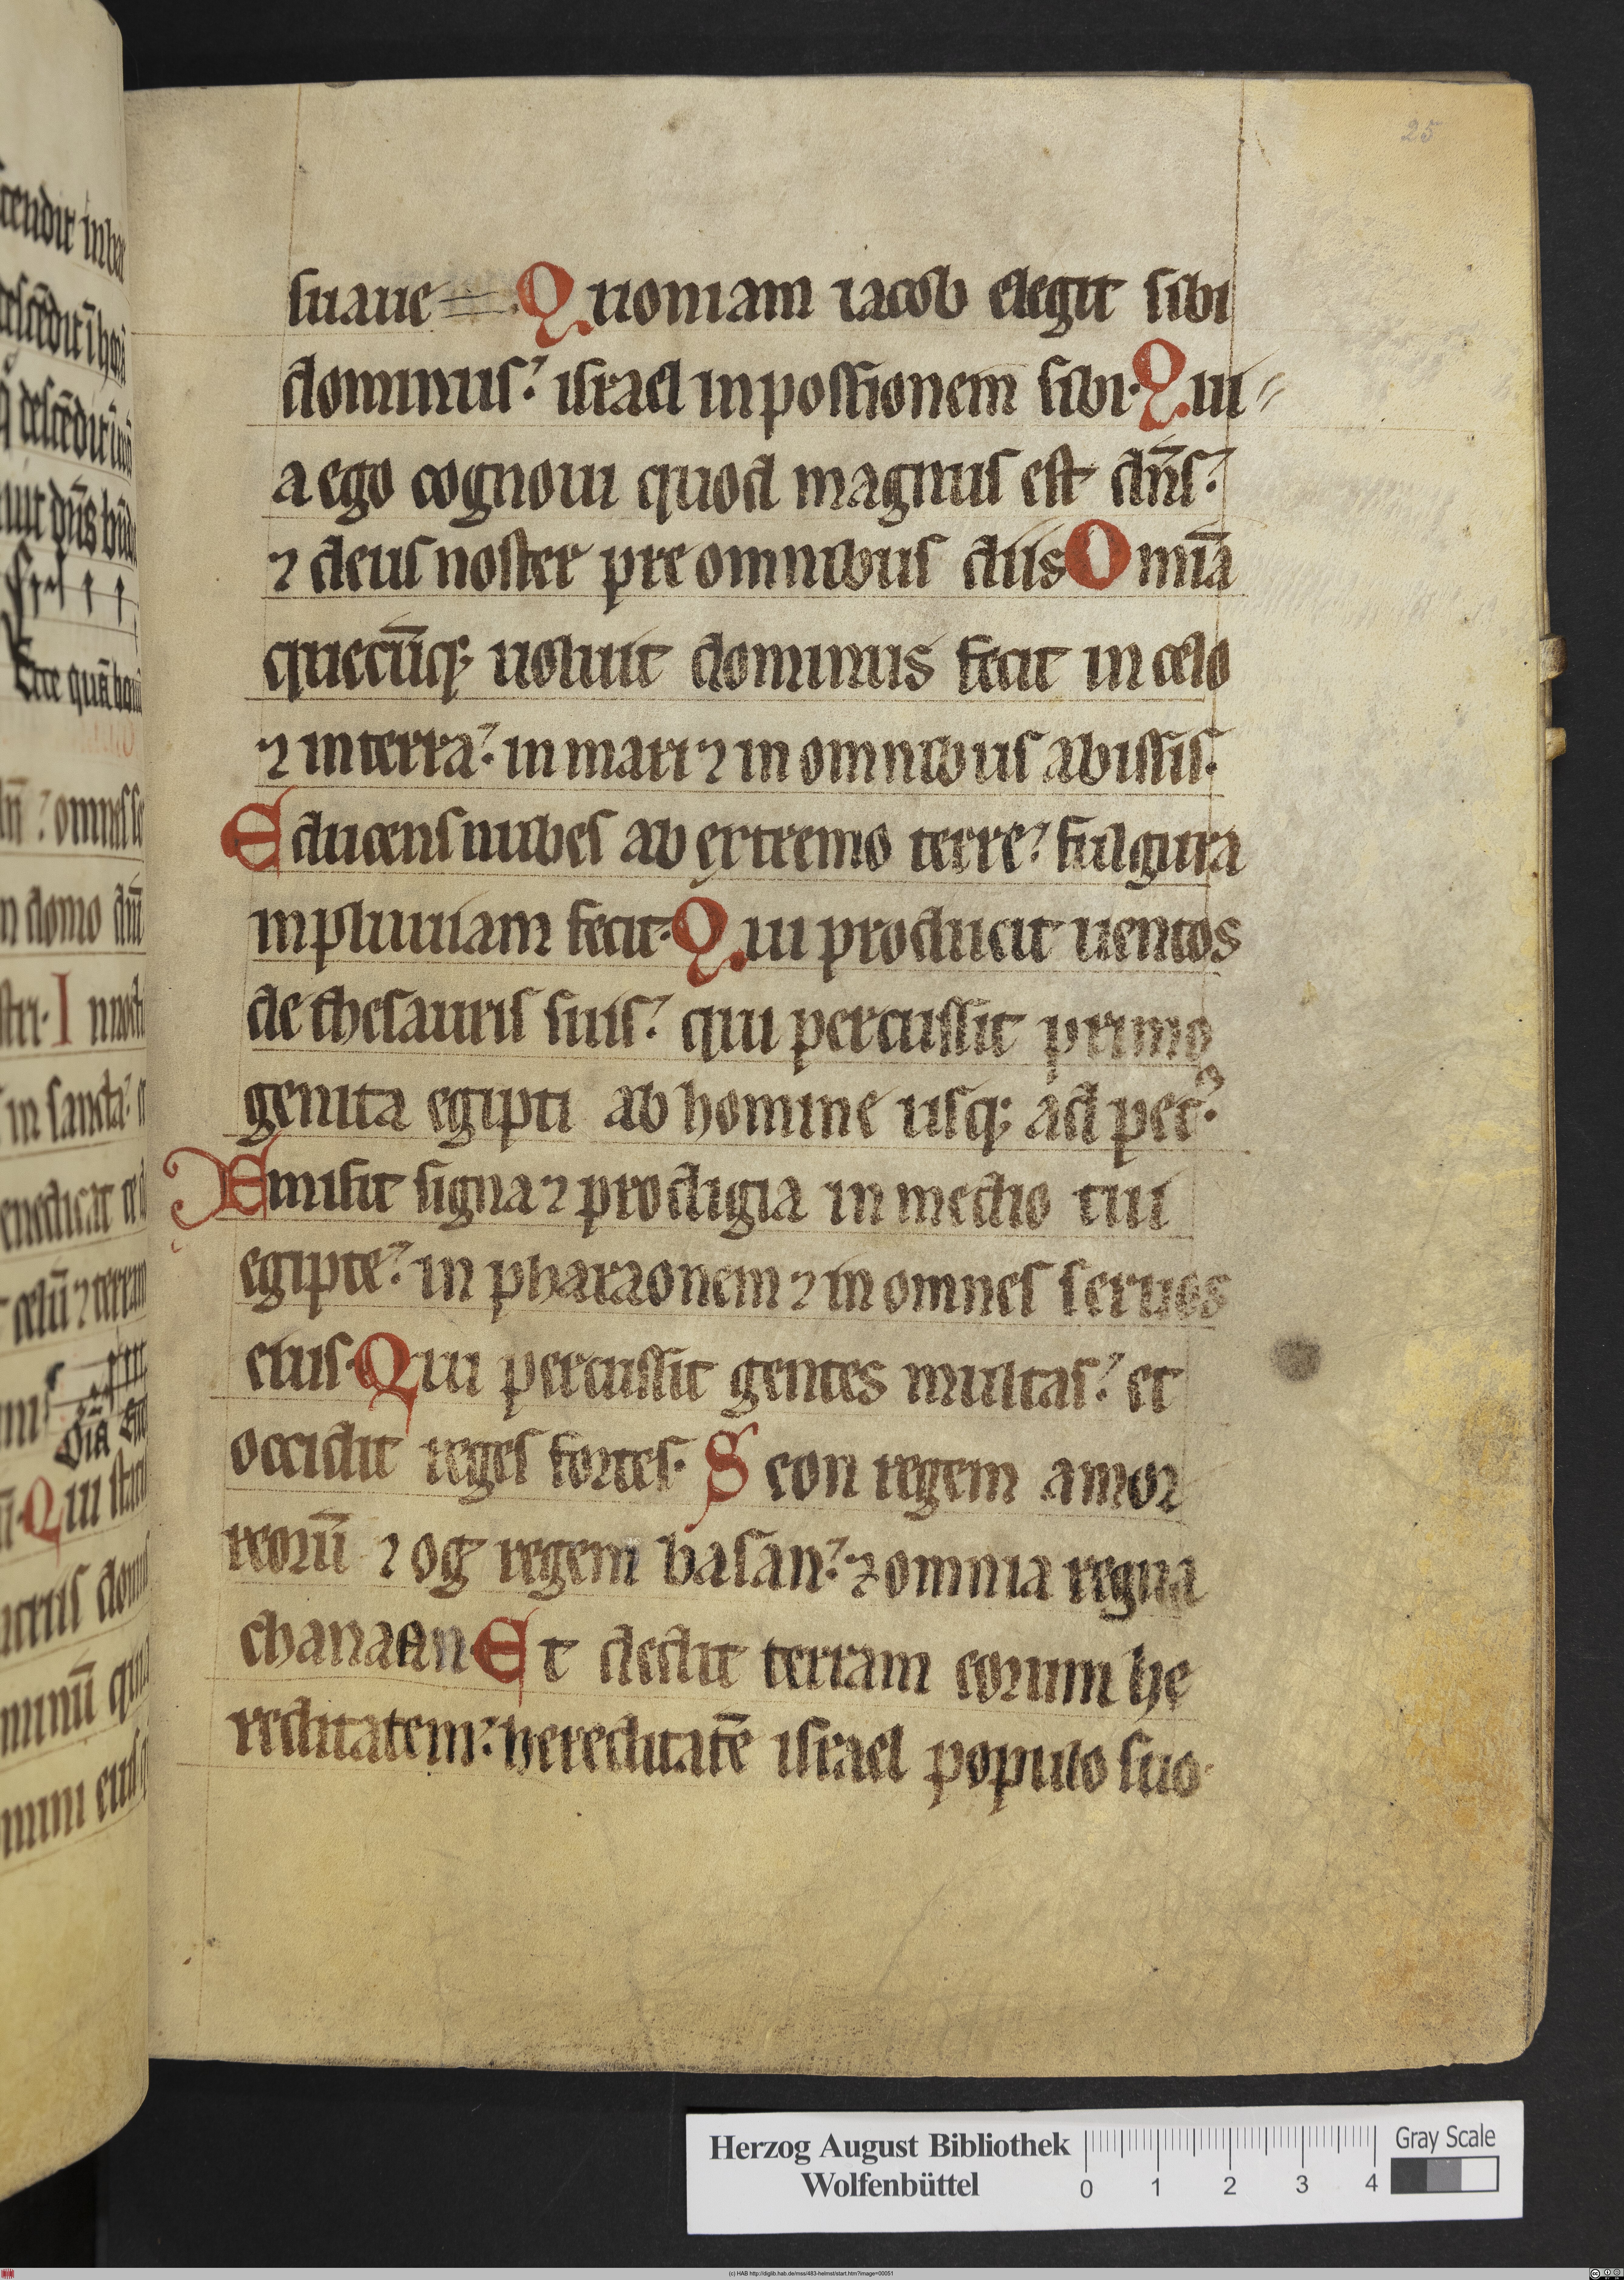 25
suaue Quoniam iacob elegit sibi
dominus: israel in possionem sibi. Qui-
a ego cognoui quod magnus est dn̄s:
⁊ deus noster pre omnibus diis Omīa
quecūq; uoluit dominus fecit in celo
⁊ in terra: in mari ⁊ in omnibus abissis.
Educens nubes ab extremo terre: fulgura
in pluuiam fecit. Qui producit uentos
de thesauris suis: qui percussit primo
genita egipti ab homine usq; ad pec᷒.
Emisit signa ⁊ prodigia in medio tui
egipte: in pharaonem ⁊ in omnes seruos
eius. Qui percussit gentes multas: et
occidit reges fortes. Seon regem amor
reorū ⁊ og regem basan: ⁊ omnia regna
chanaan Et dedit terram eorum he
reditatem: hereditatē israel populo suo.
Herzog August Bibliothek
Wolfenbüttel
0 1 2 3 4
Gray Scale
(c) HAB http://diglib.hab.de/mss/483-helmst/start.htm?image=00051